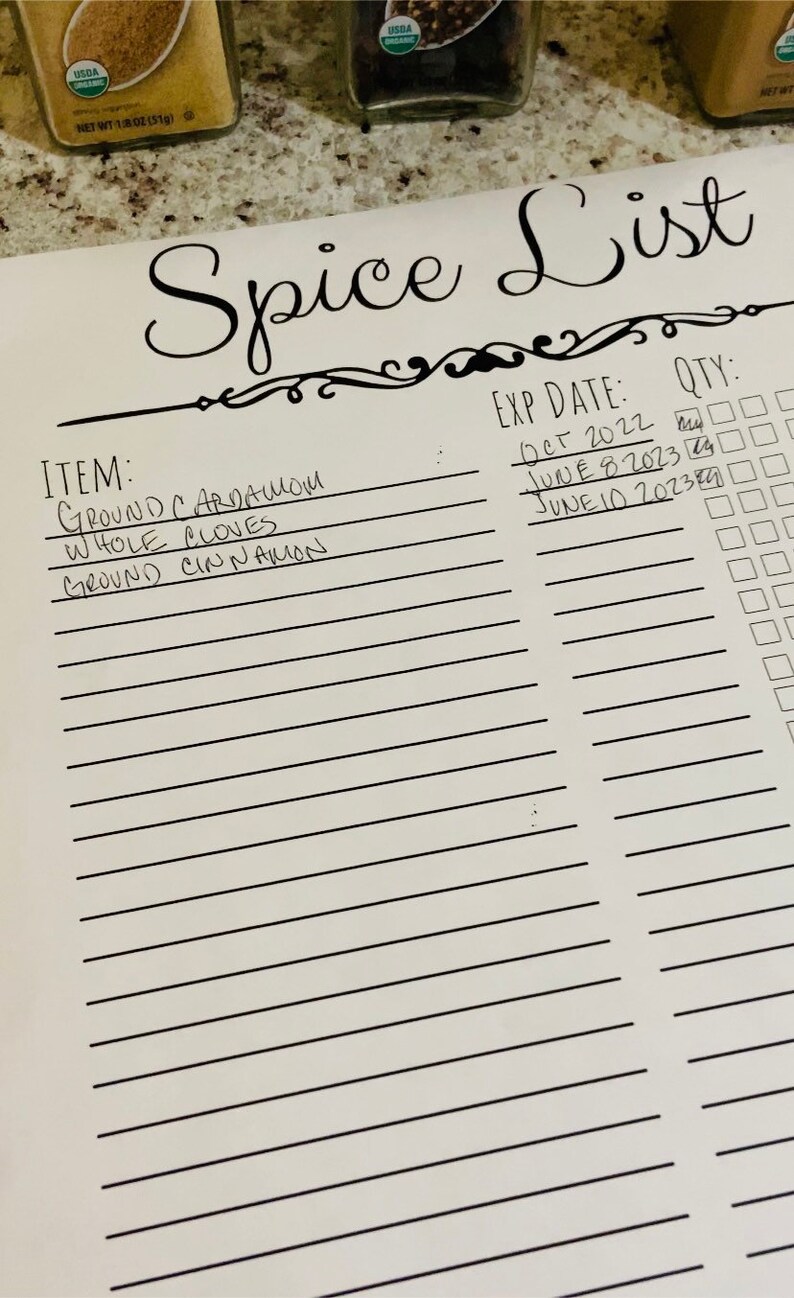 USDA
ORGANIC
NET WT 1.8 OZ (51g)
USDA
ORGANIC
NET WT
Spice List
ITEM: EXP DATE: QTY:
GROUND CARDAMOM OCT 2022
WHOLE CLOVES JUNE 8 2023
GROUND CINNAMON JUNE 10 2023